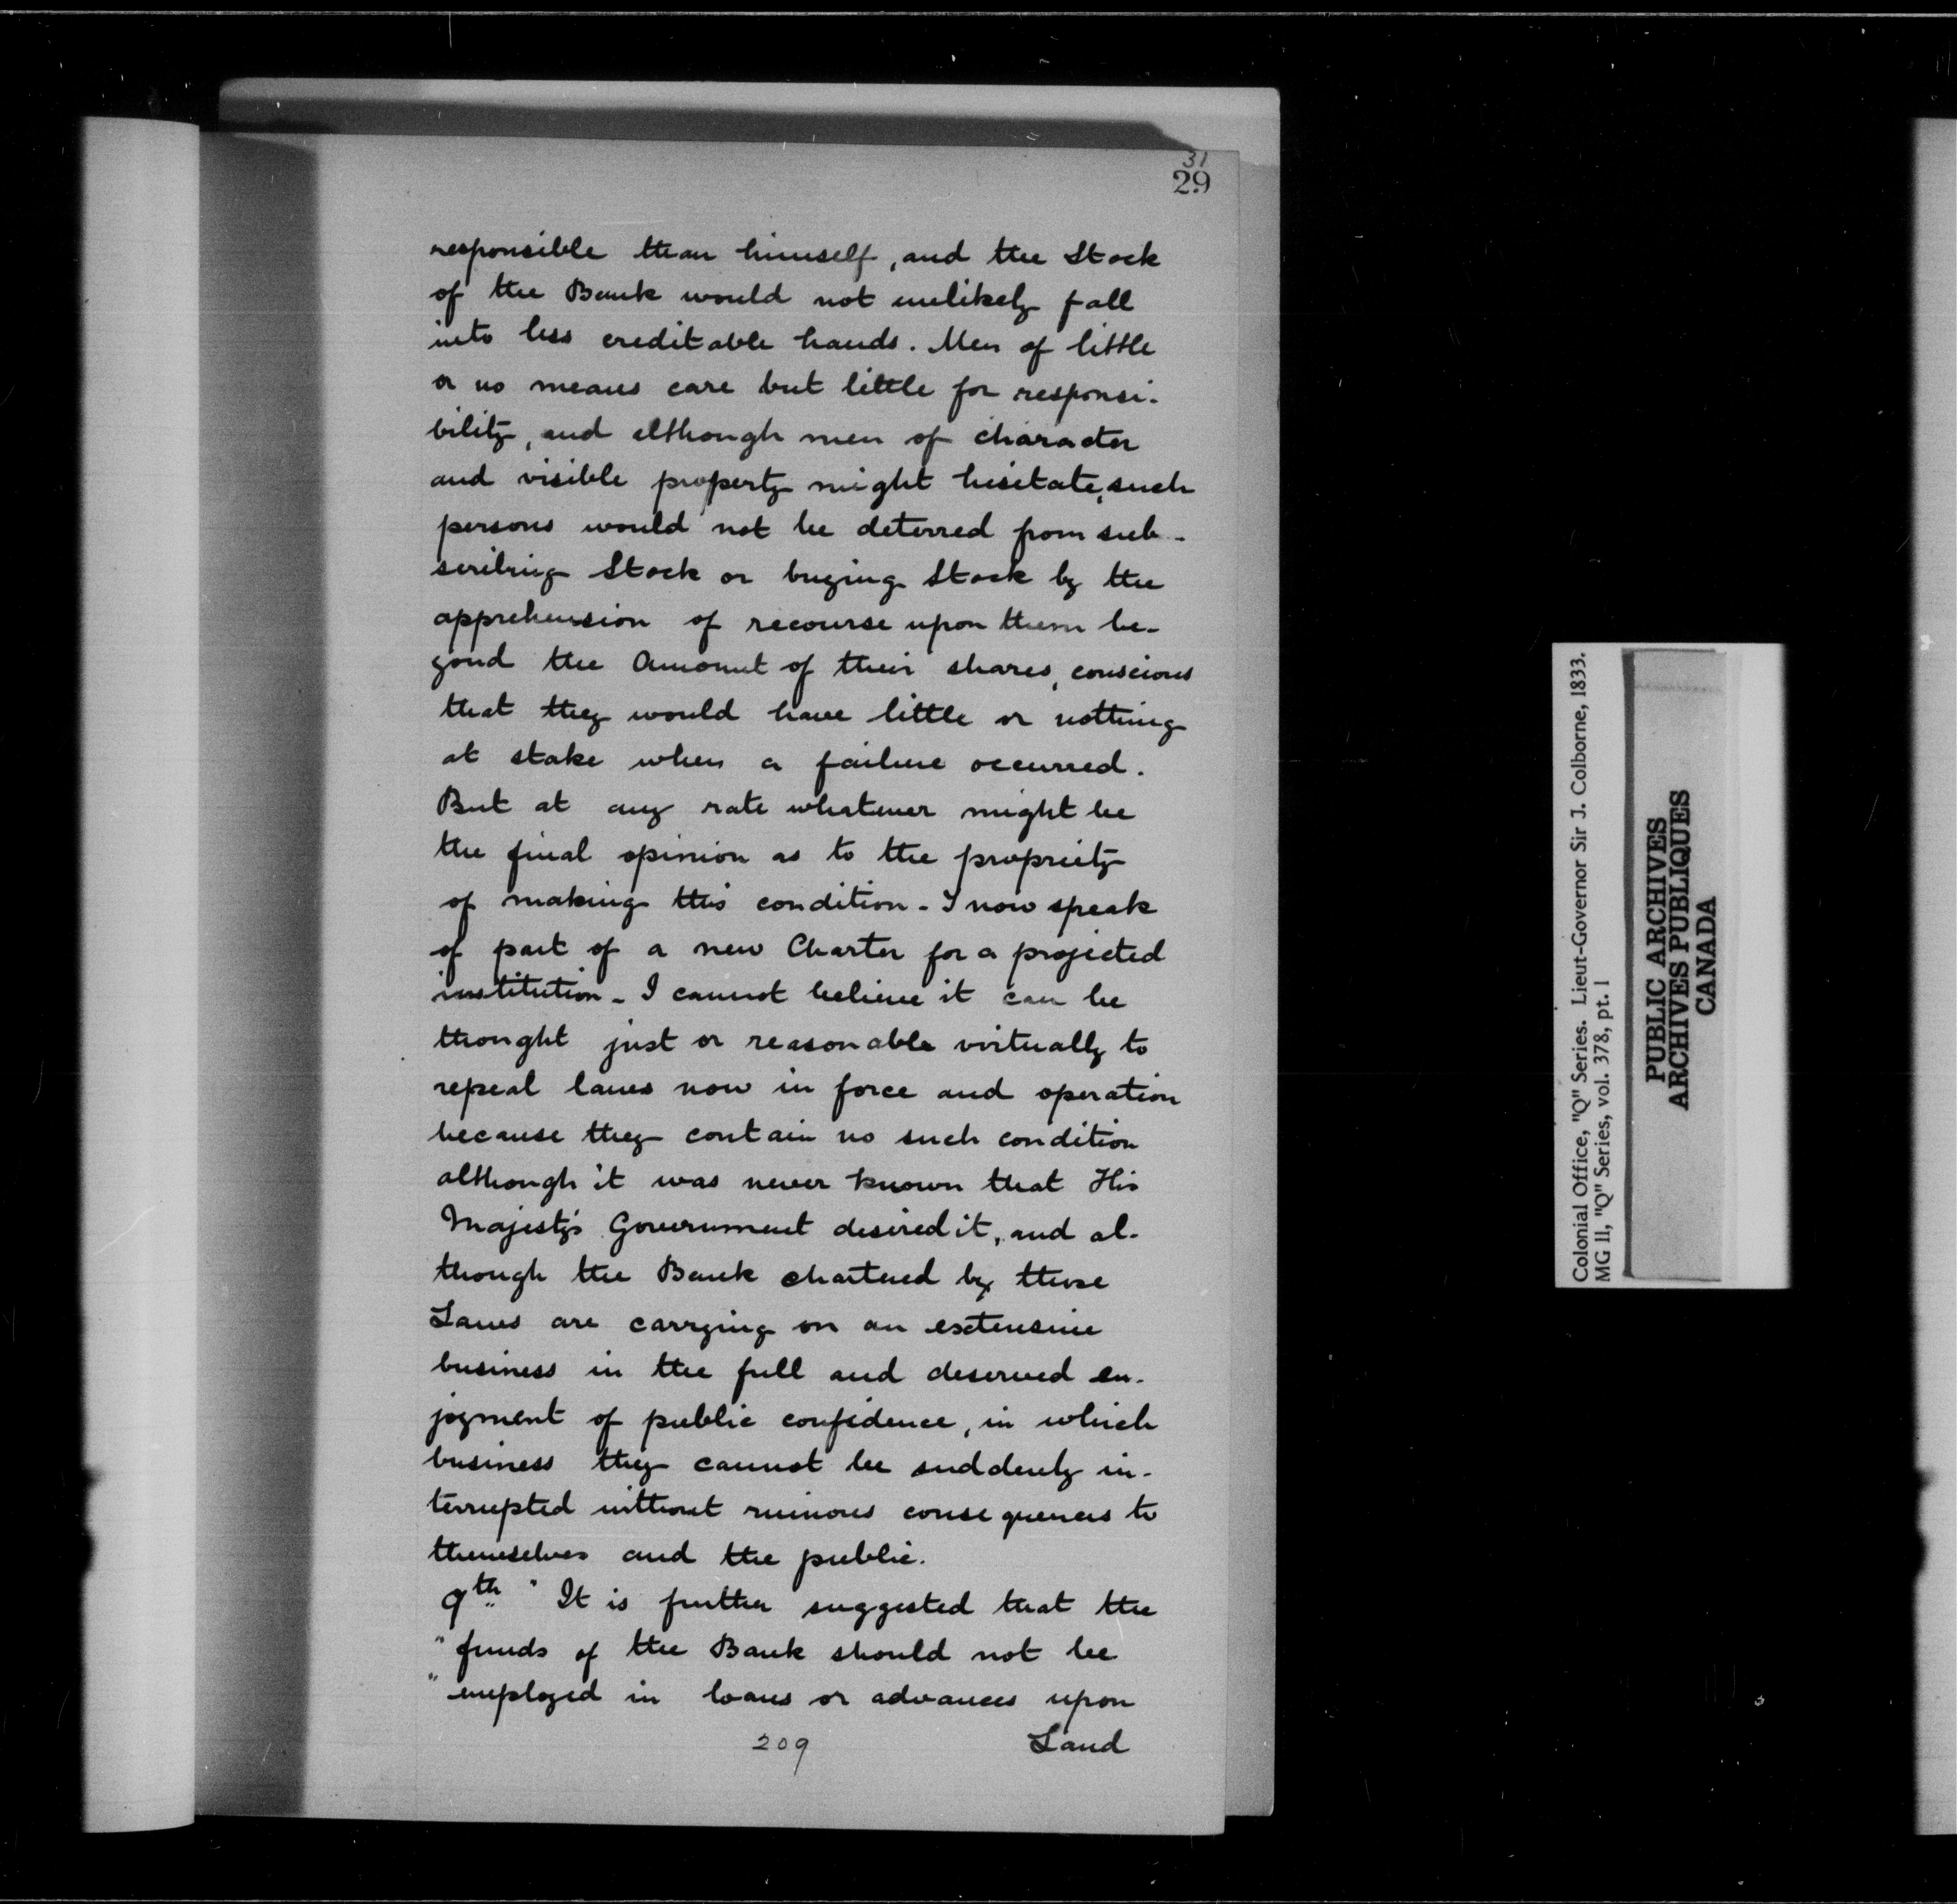 31
29
responsible than himself, and the Stock
of the Bank would not unlikely fall
into less creditable hands. Men of little
or no means care but little for responsi-
bility, and although men of character
and visible property might hesitate, such
persons would not be deterred from sub-
scribing Stock or buying Stock by the
apprehension of recourse upon them be-
yond the Amount of their shares, conscious
that they would have little or nothing
at stake when a failure occurred.
But at any rate whatever might be
the final opinion as to the propriety
of making this condition - I now speak
of part of a new Charter for a projected
institution - I cannot believe it can be
thought just or reasonable virtually to
repeal laws now in force and operation
because they contain no such condition
although it was never known that His
Majesty's Government desired it, and al-
though the Bank chartered by those
Laws are carrying on an extensive
business in the full and deserved en-
joyment of public confidence, in which
business they cannot be suddenly in-
terrupted without ruinous consequences to
themselves and the public.
9th " It is further suggested that the
" funds of the Bank should not be
" employed in loans or advances upon
209 Land
Colonial Office, "Q" Series. Lieut-Governor Sir J. Colborne, 1833.
MG 11, "Q" Series, vol. 378, pt. 1
PUBLIC ARCHIVES
ARCHIVES PUBLIQUES
CANADA